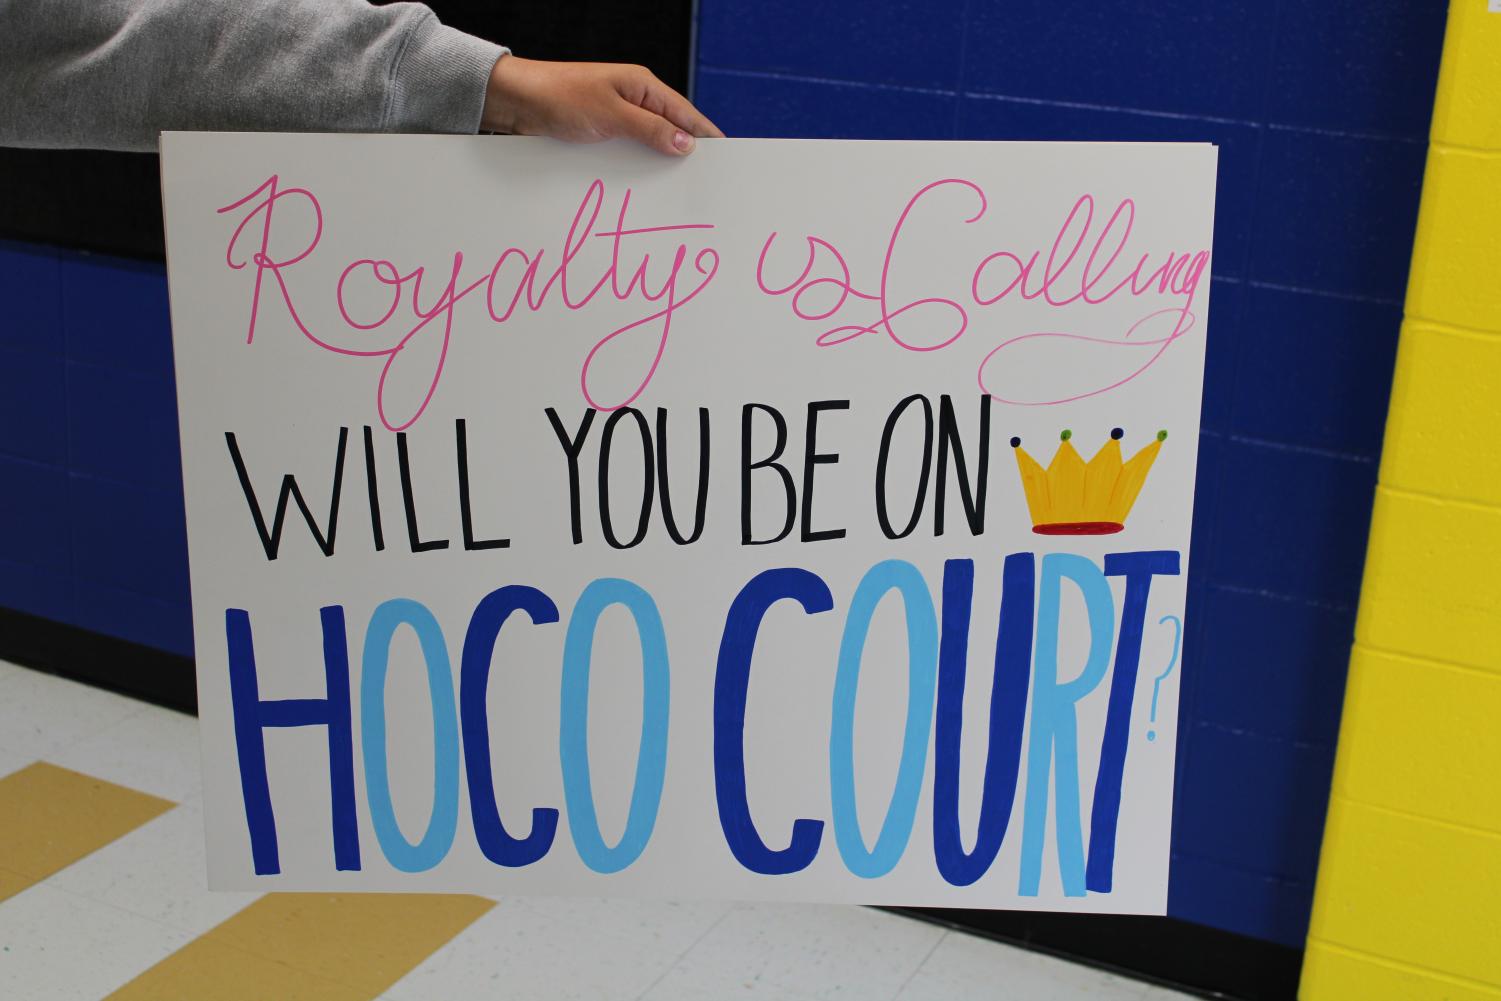 Royalty is Calling
WILL YOU BE ON
HOCO COURT?